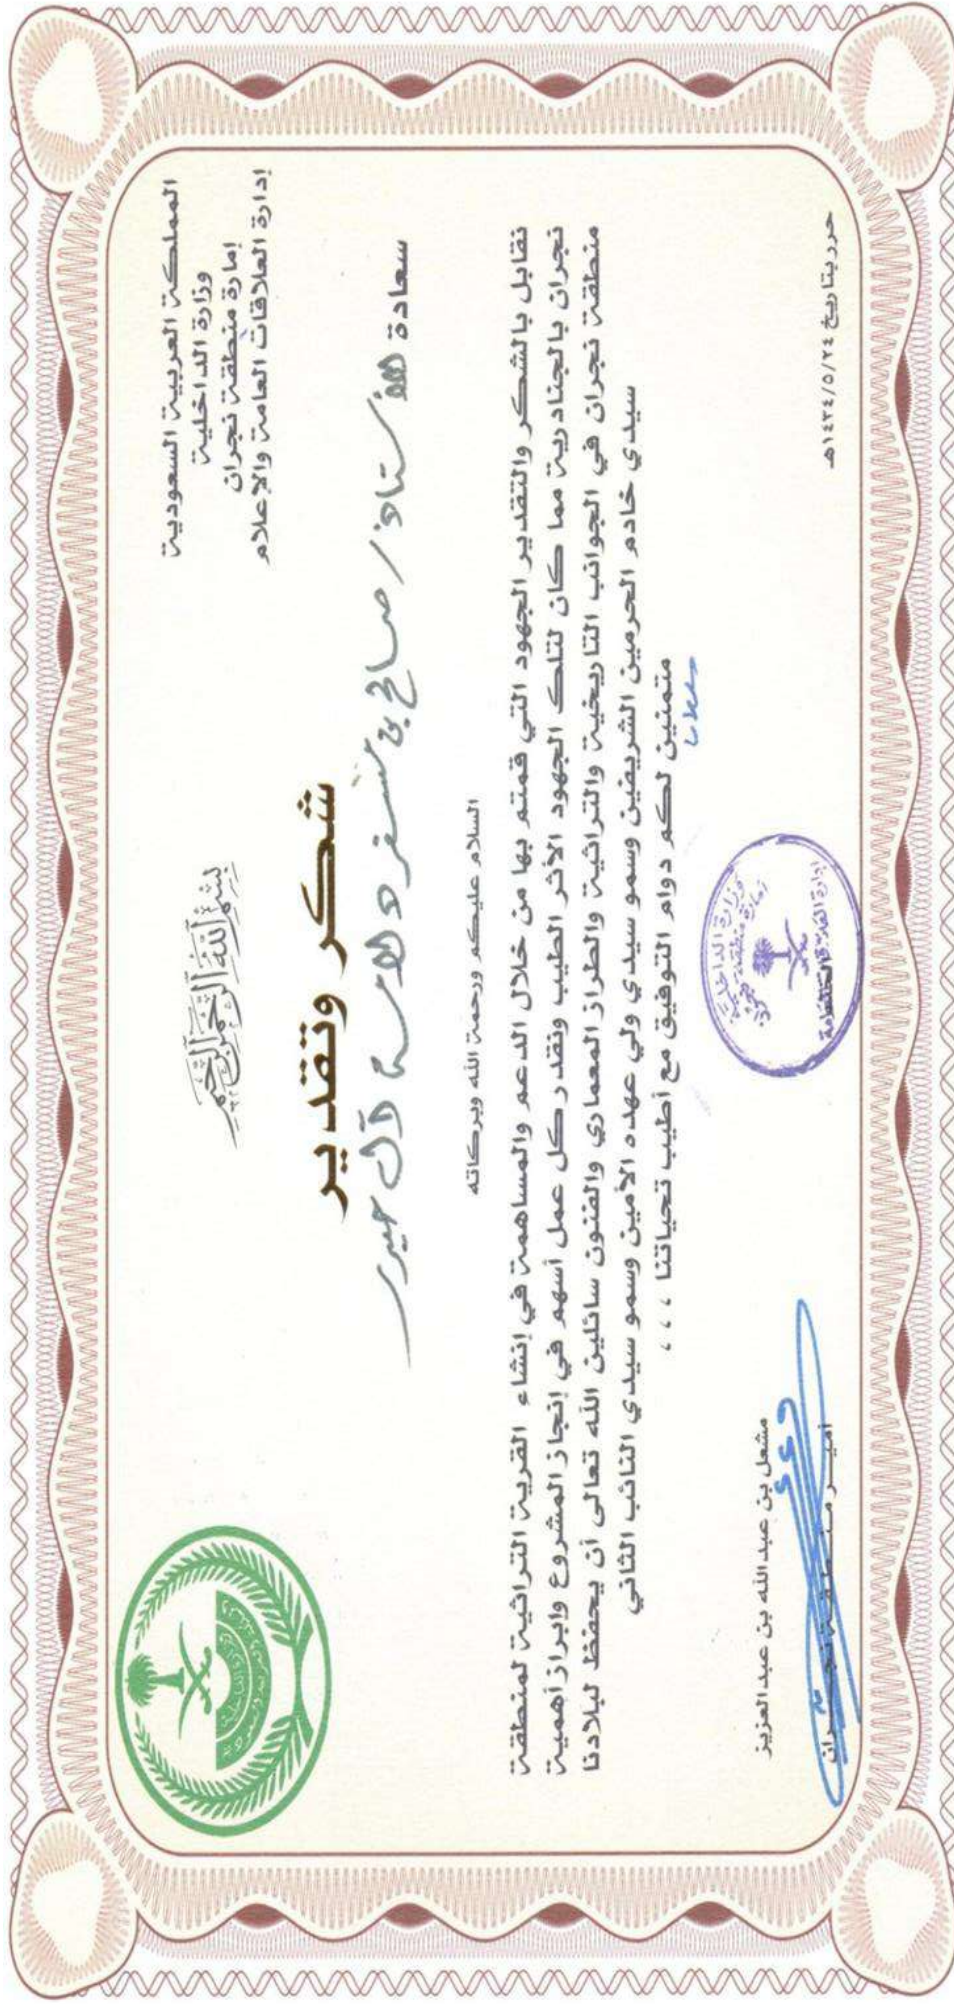 المملكة العربية السعودية
وزارة الداخلية
إمارة منطقة نجران
إدارة العلاقات العامة والإعلام
بسم الله الرحمن الرحيم
شكر وتقدير
سعادة الأستاذ / صالح بن مسفر آل
السلام عليكم ورحمة الله وبركاته
نقابل بالشكر والتقدير الجهود التي قمتم بها من خلال الدعم والمساهمة في إنشاء القرية التراثية لمنطقة
نجران بالجنادرية مما كان لتلك الجهود الأثر الطيب ونقدر كل عمل أسهم في إنجاز المشروع وابراز أهمية
منطقة نجران في الجوانب التاريخية والتراثية والطراز المعماري والفنون سائلين الله تعالى أن يحفظ لبلادنا
سيدي خادم الحرمين الشريفين وسمو سيدي ولي عهده الأمين وسمو سيدي النائب الثاني
متمنين لكم دوام التوفيق مع أطيب تحياتنا ، ، ،
وزارة الداخلية
إمارة منطقة نجران
مشعل بن عبدالله بن عبدالعزيز
أميـر منـطـقـة نجـــران
حرر بتاريخ ١٤٣٤/٥/٢٤هـ